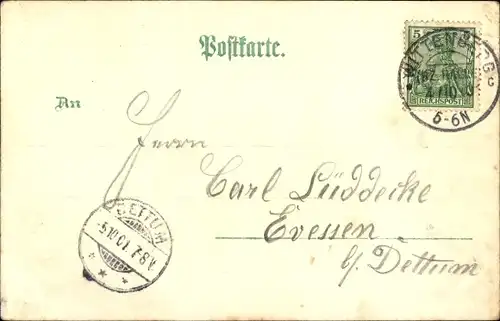 Postkarte.
5
REICHSPOST
WITTENBERG
(BZ. HALLE)
4/10
5-6N
An
Herrn
Carl Lüddecke
Evessen
b/ Dettum
DETTUM
5.10.01. 7-8V.